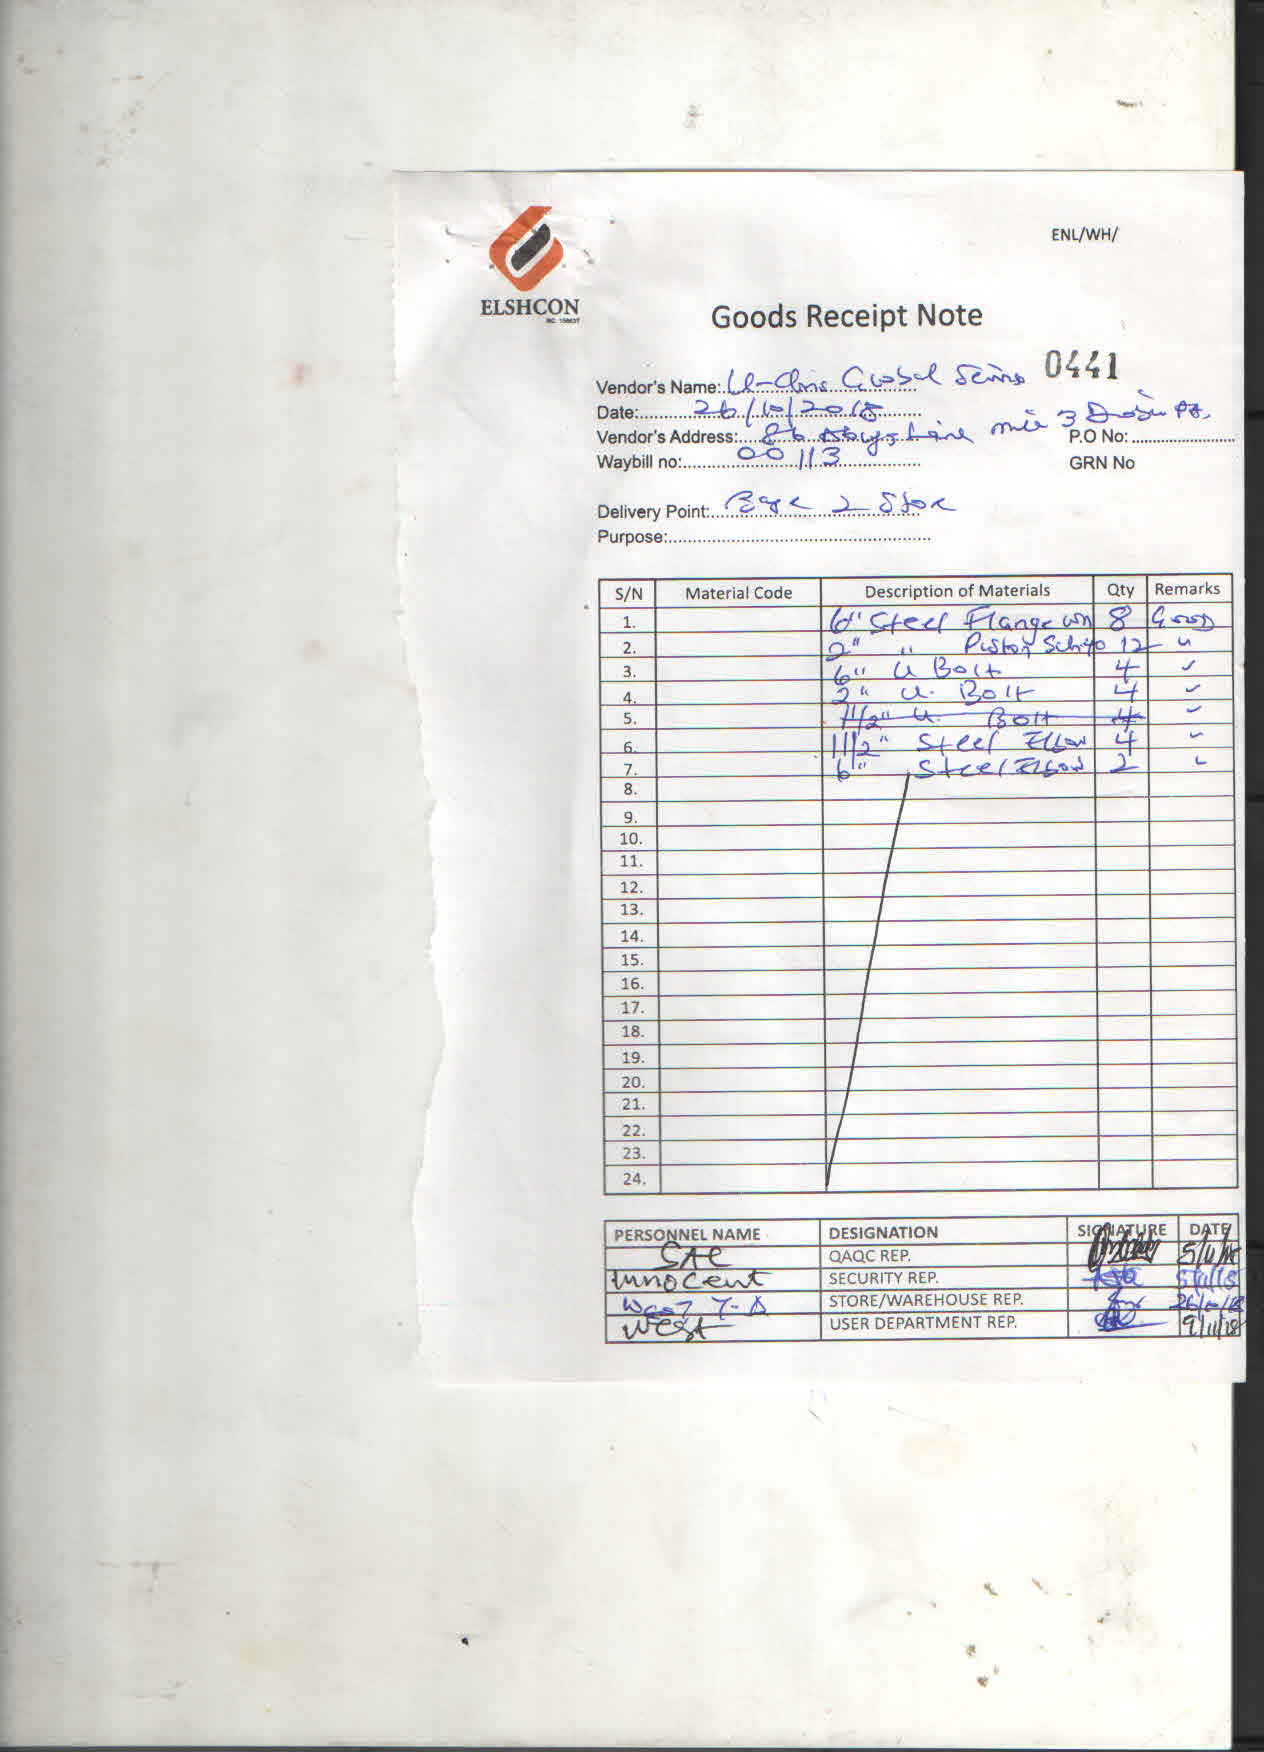 ELSHCON
RC. 156637
ENL/WH/
Goods Receipt Note
0441
Vendor's Name: Global
Date: 26/10/2018
Vendor's Address: 86 mile 3
P.O No:
Waybill no: 00113
GRN No
Delivery Point: Base 2 Store
Purpose:
S/N Material Code Description of Materials Qty Remarks
1. 6" Steel Flange WN 8 Good
2. 2" " 12 "
3. 6" U Bolt 4 "
4. 2" U. Bolt 4 "
5. 1 1/2" U. Bolt 4 "
6. 1 1/2" Steel Elbow 4 "
7. 6" Steel Elbow 2 "
8.
9.
10.
11.
12.
13.
14.
15.
16.
17.
18.
19.
20.
21.
22.
23.
24.
PERSONNEL NAME DESIGNATION SIGNATURE DATE
QAQC REP. 5/11/18
Innocent SECURITY REP. 5/11/18
STORE/WAREHOUSE REP. 26/10/18
West USER DEPARTMENT REP. 9/11/18